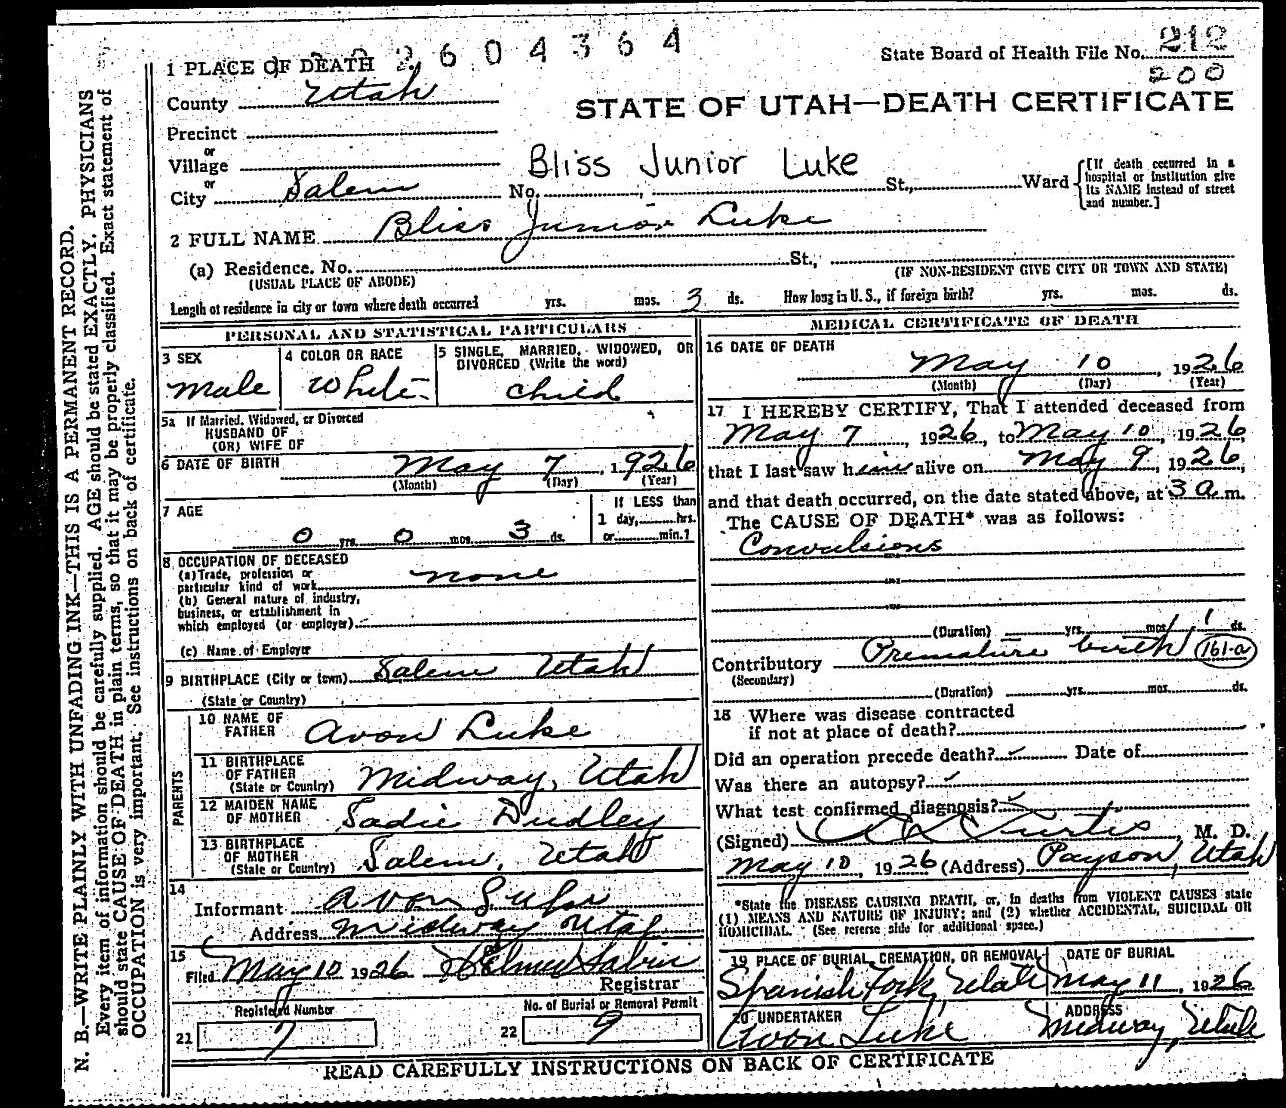 N. B.—WRITE PLAINLY WITH UNFADING INK—THIS IS A PERMANENT RECORD.
Every item of information should be carefully supplied. AGE should be stated EXACTLY. PHYSICIANS
should state CAUSE OF DEATH in plain terms, so that it may be properly classified. Exact statement of
OCCUPATION is very important. See instructions on back of certificate.
2604364
State Board of Health File No. 212
200
1 PLACE OF DEATH
County Utah
STATE OF UTAH—DEATH CERTIFICATE
Precinct
or
Village
Bliss Junior Luke
or
City Salem No. St., Ward
[If death occurred in a hospital or institution give its NAME instead of street and number.]
2 FULL NAME Bliss Junior Luke
(a) Residence. No. St.,
(USUAL PLACE OF ABODE) (IF NON-RESIDENT GIVE CITY OR TOWN AND STATE)
Length of residence in city or town where death occurred yrs. mos. 3 ds. How long in U. S., if foreign birth? yrs. mos. ds.
PERSONAL AND STATISTICAL PARTICULARS
3 SEX
Male
4 COLOR OR RACE
White
5 SINGLE, MARRIED, WIDOWED, OR
DIVORCED (Write the word)
child
5a If Married, Widowed, or Divorced
HUSBAND OF
(OR) WIFE OF
6 DATE OF BIRTH May 7, 1926
(Month) (Day) (Year)
7 AGE
0 yrs. 0 mos. 3 ds.
If LESS than
1 day, hrs.
or min.?
8 OCCUPATION OF DECEASED
(a) Trade, profession or
particular kind of work none
(b) General nature of industry,
business, or establishment in
which employed (or employer)
(c) Name of Employer
9 BIRTHPLACE (City or town) Salem Utah
(State or Country)
PARENTS
10 NAME OF
FATHER Avon Luke
11 BIRTHPLACE
OF FATHER
(State or Country) Midway, Utah
12 MAIDEN NAME
OF MOTHER Sadie Dudley
13 BIRTHPLACE
OF MOTHER
(State or Country) Salem, Utah
14
Informant Avon Luke
Address Midway Utah
15
Filed May 10 1926
Registrar
Registered Number
21 7
No. of Burial or Removal Permit
22 9
MEDICAL CERTIFICATE OF DEATH
16 DATE OF DEATH
May 10, 1926
(Month) (Day) (Year)
17 I HEREBY CERTIFY, That I attended deceased from
May 7, 1926, to May 10, 1926,
that I last saw him alive on May 9, 1926,
and that death occurred, on the date stated above, at 3 a m.
The CAUSE OF DEATH* was as follows:
Convulsions
(Duration) yrs. mos. 1 ds.
Contributory Premature birth 161-a
(Secondary)
(Duration) yrs. mos. ds.
18 Where was disease contracted
if not at place of death?
Did an operation precede death? Date of
Was there an autopsy?
What test confirmed diagnosis?
(Signed) Curtis, M. D.
May 10, 1926 (Address) Payson, Utah
*State the DISEASE CAUSING DEATH, or, in deaths from VIOLENT CAUSES state
(1) MEANS AND NATURE OF INJURY; and (2) whether ACCIDENTAL, SUICIDAL OR
HOMICIDAL. (See reverse side for additional space.)
19 PLACE OF BURIAL, CREMATION, OR REMOVAL
Spanish Fork, Utah
DATE OF BURIAL
May 11, 1926
20 UNDERTAKER
Avon Luke
ADDRESS
Midway, Utah
READ CAREFULLY INSTRUCTIONS ON BACK OF CERTIFICATE